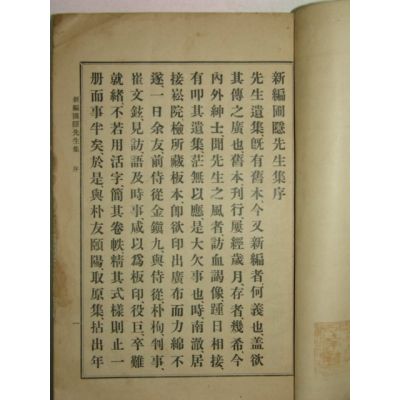 新編圃隱先生集序
先生遺集旣有舊本今又新編者、何義也盖欲
其傳之廣也舊本刊行屢經歲月、存者幾希今
內外紳士聞先生之風者訪血謁像踵日相接、
有叩其遺集茫無以應是大欠事也、時南澈居
接崧院檢所藏板本卽欲印出廣布而力綿不
遂、一日余友前侍從金鎭九與侍從朴枸判事
崔文鉉見訪、語及時事、咸以爲板印、役巨、卒難
就緒、不若用活字、簡其卷帙精其式樣則止一
册而事半矣於是與朴友頤陽、取原集、拈出年
新編圃隱先生集 序
一